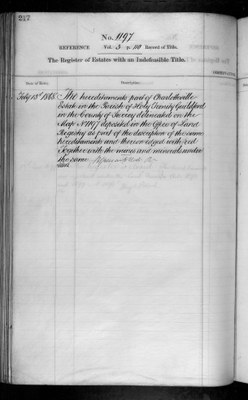 217
No. 1197.
REFERENCE Vol. 3 p. 50 Record of Title.
The Register of Estates with an Indefeasible Title.
Date of Entry. Description.
July 13th 1868. The hereditaments part of Charlotteville
Estate in the Parish of Holy Trinity Guildford
in the County of Surrey delineated on the
Map No 1197 deposited in the Office of Land
Registry as part of the description of the same
hereditaments and thereon edged with red
Together with the mines and minerals under
the same